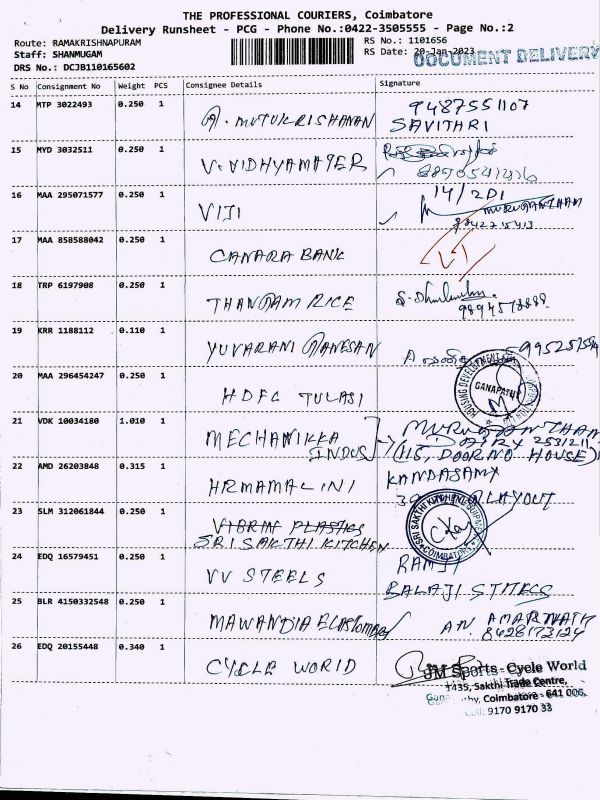 THE PROFESSIONAL COURIERS, Coimbatore
Delivery Runsheet - PCG - Phone No.:0422-3505555 - Page No.:2
Route: RAMAKRISHNAPURAM
Staff: SHANMUGAM
DRS No.: DCJB110165602
RS No.: 1101656
RS Date: 20-Jan-2023
DOCUMENT DELIVERY
S No Consignment No Weight PCS Consignee Details Signature
14 MTP 3022493 0.250 1 A. MUTUKRISHANAN 9487551107
SAVITHRI
15 MYD 3032511 0.250 1 V. VIDHYAMAYER
16 MAA 295071577 0.250 1 VIJI 14/2D1
MURUGANTHAM
9842715413
17 MAA 858588042 0.250 1 CANARA BANK
18 TRP 6197908 0.250 1 THANGAM RICE
19 KRR 1188112 0.110 1 YUVARANI GANESAN
20 MAA 296454247 0.250 1 HDFC TULASI
HOUSING DEVELOPMENT
GANAPATHY
21 VDK 10034180 1.010 1 MECHANIKKA
INDUS
MURUGANTHAM
DAIRY
(115, DOOR NO HOUSE)
22 AMD 26203848 0.315 1 HRMAMALINI KANDASAMY
LAYOUT
23 SLM 312061844 0.250 1 VIBRIN PLASTICS
SRI SAKTHI KITCHEN
SRI SAKTHI KITCHEN EQUIPMENTS
COIMBATORE
24 EDQ 16579451 0.250 1 VV STEELS RAMJI
BALAJI
25 BLR 4150332548 0.250 1 MAWANDIA ELASTOMER A.N. AMARNATH
8428173124
26 EDQ 20155448 0.340 1 CYCLE WORLD
JM Sports - Cycle World
1435, Sakthi Trade Centre,
Coimbatore - 641 006.
Cell: 9170 9170 33